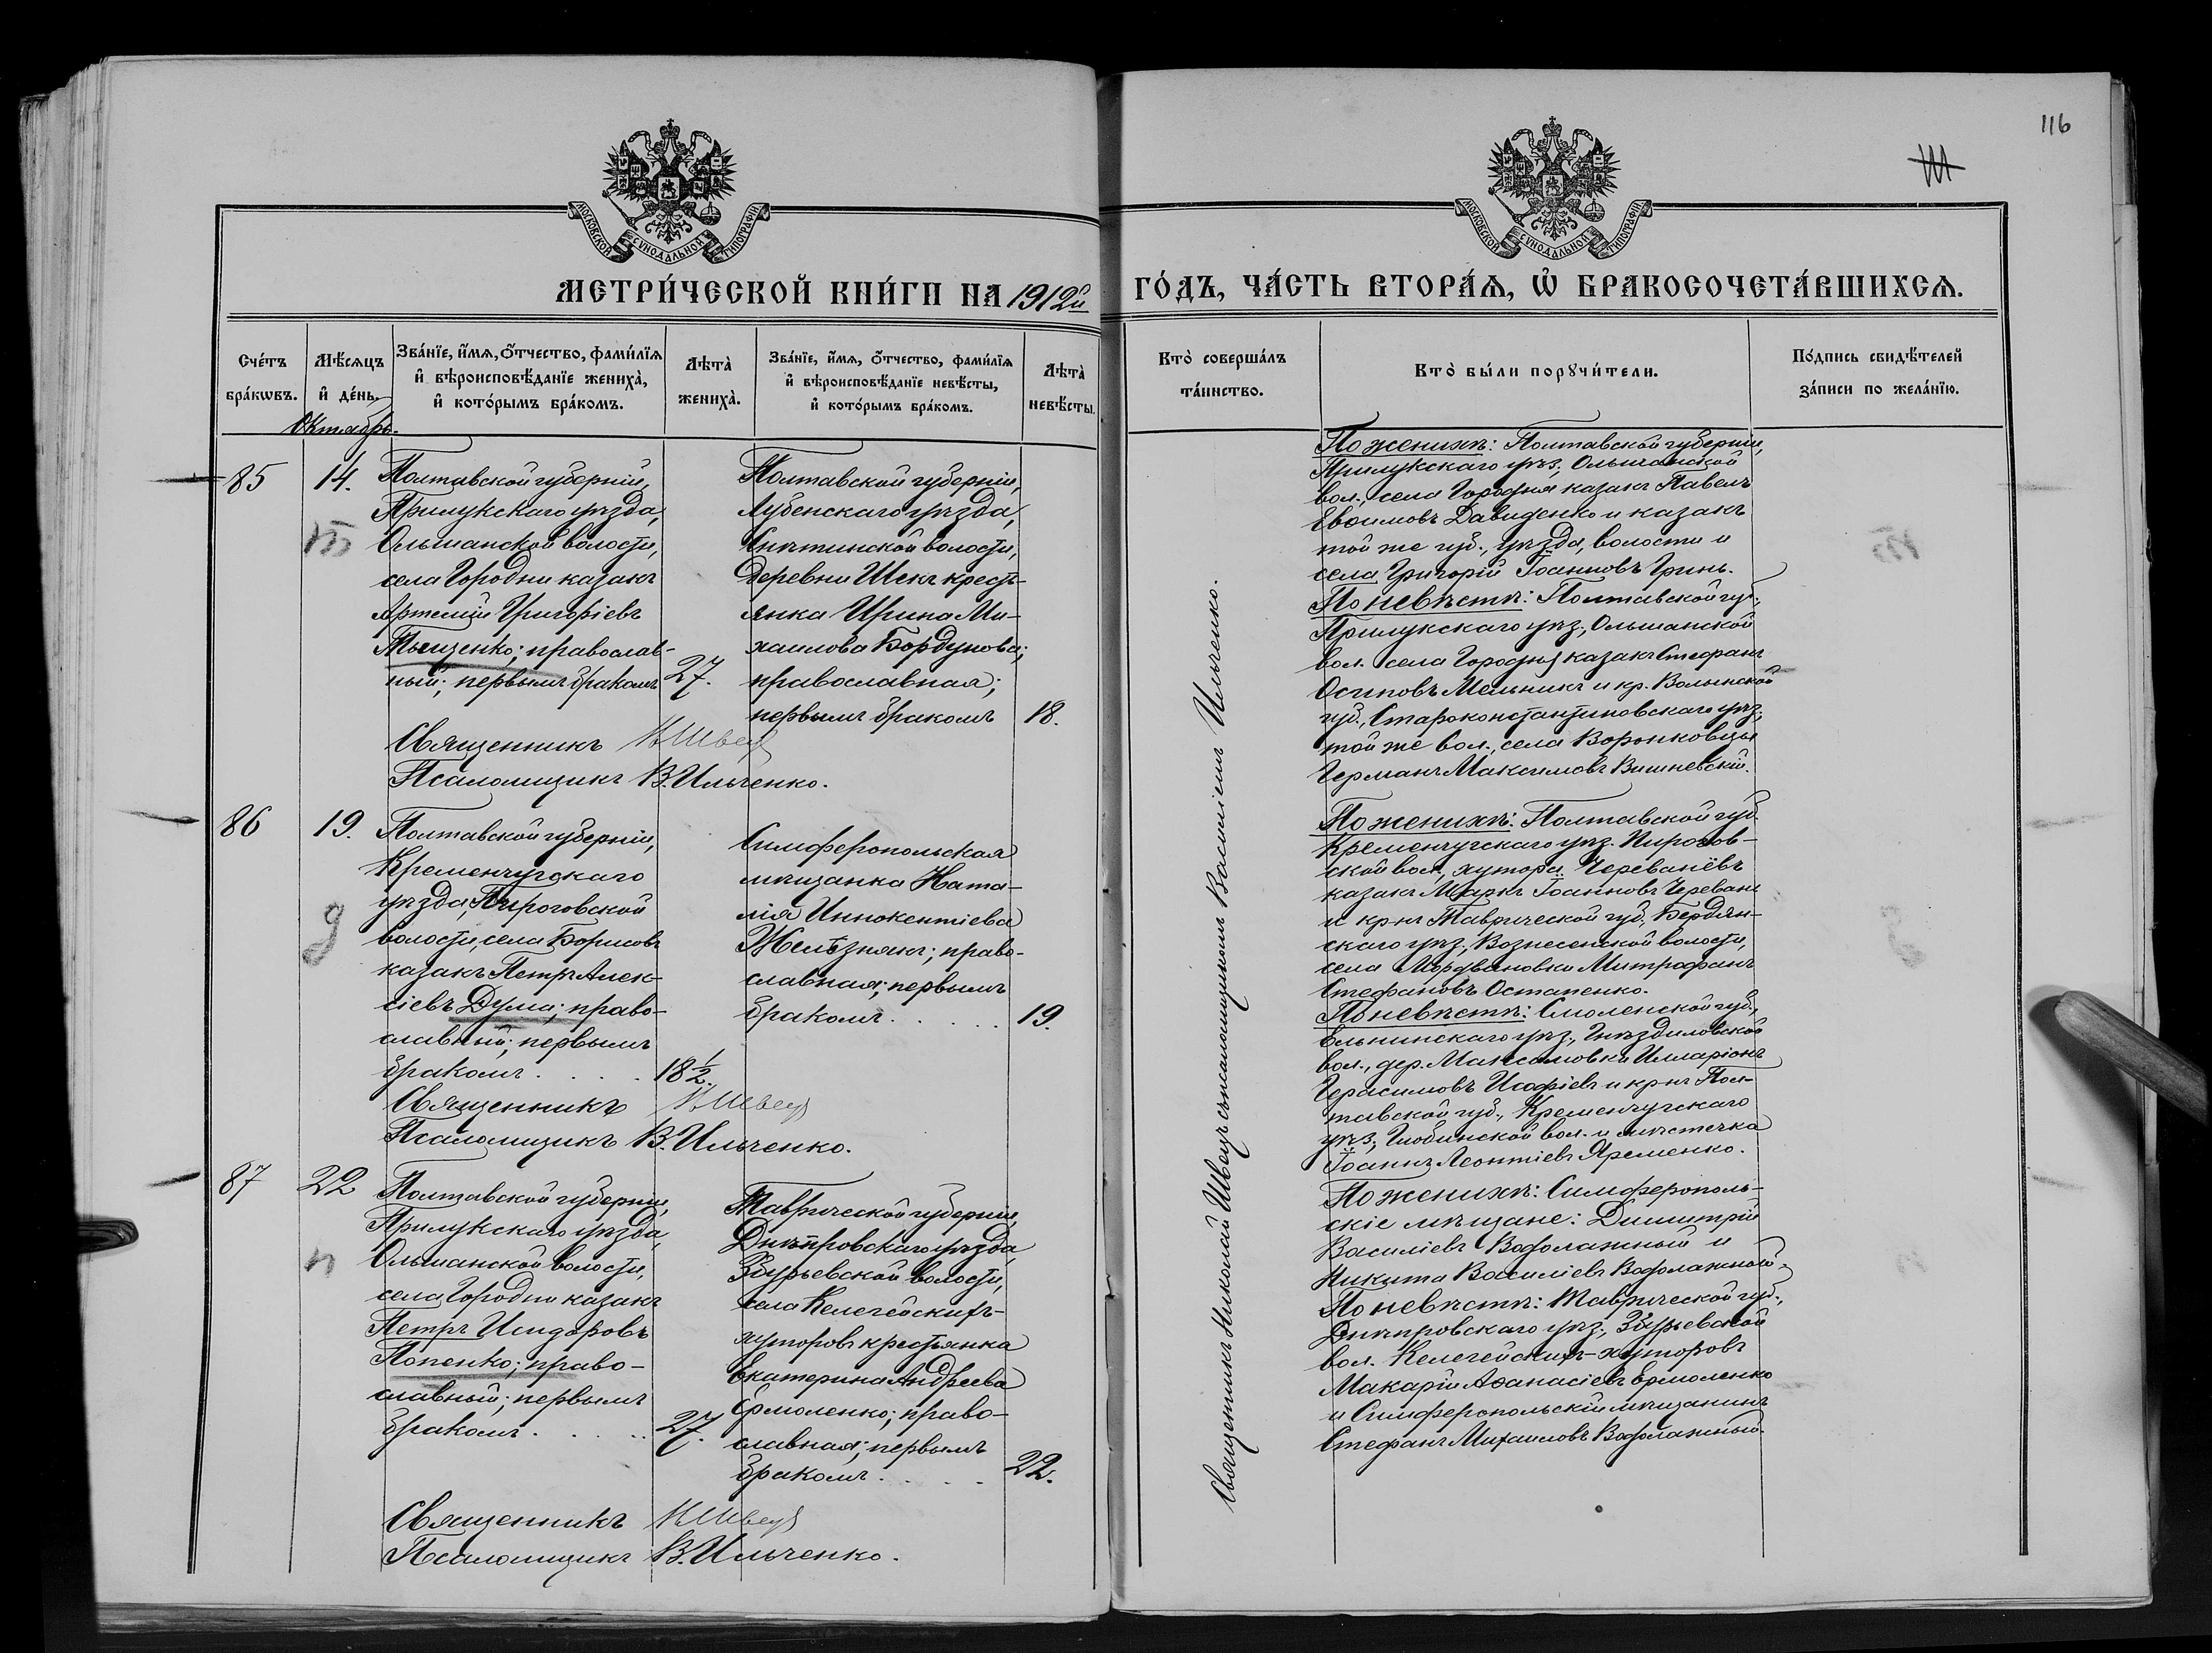 116
МОСКОВСКОЙ СѴНОДАЛЬНОЙ ТИПОГРАФІИ
МОСКОВСКОЙ СѴНОДАЛЬНОЙ ТИПОГРАФІИ
МЕТРИ́ЧЕСКОЙ КНИ́ГИ НА 1912й
ГО́ДЪ, ЧА́СТЬ ВТОРА́Ѧ, Ѽ БРАКОСОЧЕТА́ВШИХСѦ.
Сче́тъ бра́кѡвъ.
Мѣ́сѧцъ и҆ де́нь.
Зва́нїе, и҆́мѧ, ѻ҆́тчество, фами́лїѧ и҆ вѣроисповѣ́данїе жениха̀, и҆ кото́рымъ бра́комъ.
Лѣта̀ жениха̀.
Зва́нїе, и҆́мѧ, ѻ҆́тчество, фами́лїѧ и҆ вѣроисповѣ́данїе невѣ́сты, и҆ кото́рымъ бра́комъ.
Лѣта̀ невѣ́сты.
Кто̀ соверша́лъ та́инство.
Кто̀ бы́ли порꙋчи́тели.
По́дпись свидѣ́телей за́писи по жела́нїю.
Октябрь.
85
14.
Полтавской губерніи,
Прилукскаго уѣзда,
Ольшанской волости,
села Городни казакъ
Артемій Григоріевъ
Тыщенко; православ-
ный; первымъ бракомъ
27.
Полтавской губерніи,
Лубенскаго уѣзда,
Снѣтинской волости,
деревни Шекъ кресть-
янка Ирина Ми-
хаилова Бордунова;
православная;
первымъ бракомъ
18.
Священникъ Н Швецъ
Псаломщикъ В. Ильченко.
86
19.
Полтавской губерніи,
Кременчугскаго
уѣзда, Пироговской
волости, села Борисовъ
казакъ Петръ Алек-
сіевъ Дума; право-
славный; первымъ
бракомъ . . . .
18½.
Симферопольская
мѣщанка Ната-
лія Иннокентіева
Желѣзнякъ; право-
славная; первымъ
бракомъ . . . . .
19.
Священникъ Н Швецъ
Псаломщикъ В. Ильченко.
87
22
Полтавской губерніи,
Прилукскаго уѣзда,
Ольшанской волости,
села Городни казакъ
Петръ Исидоровъ
Попенко; право-
славный; первымъ
бракомъ . . . . .
27.
Таврической губерніи,
Днѣпровскаго уѣзда,
Збурьевской волости,
села Келегейскихъ-
хуторовъ крестьянка
Екатерина Андреева
Ермоленко; право-
славная; первымъ
бракомъ . . . .
22.
Священникъ Н Швецъ
Псаломщикъ В. Ильченко.
Священникъ Николай Швецъ съ псаломщикомъ Василіемъ Ильченко.
По женихѣ: Полтавской губерніи,
Прилукскаго уѣз., Ольшанской
вол., села Городня казакъ Павелъ
Евѳимовъ Давиденко и казакъ
той же губ., уѣзда, волости и
села Григорій Іоанновъ Гринь.
По невѣстѣ: Полтавской губ.,
Прилукскаго уѣз., Ольшанской
вол. села Городня казакъ Стефанъ
Осиповъ Мельникъ и кр. Волынской
губ., Староконстантиновскаго уѣз.,
той же вол., села Воронковцы
Германъ Максимовъ Вишневскій.
По женихѣ: Полтавской губ.
Кременчугскаго уѣз. Пирогов-
ской вол., хутора Череванёвъ
казакъ Маркъ Іоанновъ Черевань
и кр-нъ Таврической губ., Бердян-
скаго уѣз., Вознесенской волости,
села Мордвиновки Митрофанъ
Стефановъ Остапенко.
По невѣстѣ: Смоленской губ.,
Ельнинскаго уѣз., Гнѣздиловской
вол., дер. Максимовки Илларіонъ
Герасимовъ и кр-нъ Пол-
тавской губ., Кременчугскаго
уѣз., Глобинской вол. и мѣстечка
Іоаннъ Леонтіевъ Яременко.
По женихѣ: Симферополь-
скіе мѣщане: Димитрій
Василіевъ Водолажный и
Никита Василіевъ Водолажной.
По невѣстѣ: Таврической губ.,
Днѣпровскаго уѣз., Збурьевской
вол. Келегейскихъ-хуторовъ
Макарій Аѳанасіевъ Ермоленко
и Симферопольскій мѣщанинъ
Стефанъ Михаиловъ Водолажный.